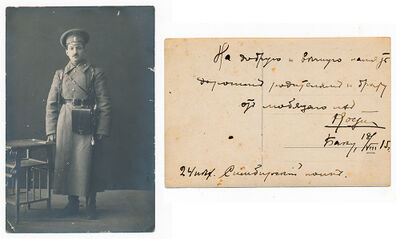 На добрую и вечную память
дорогим родителям и брату
от любящаго их
Баку, 18/VIII 15.
24 Симбирский полк.